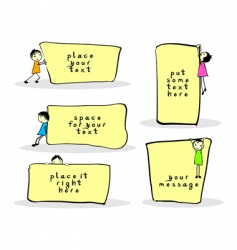 place
your
text
put
some
text
here
space
for your
text
place it
right
here
your
message